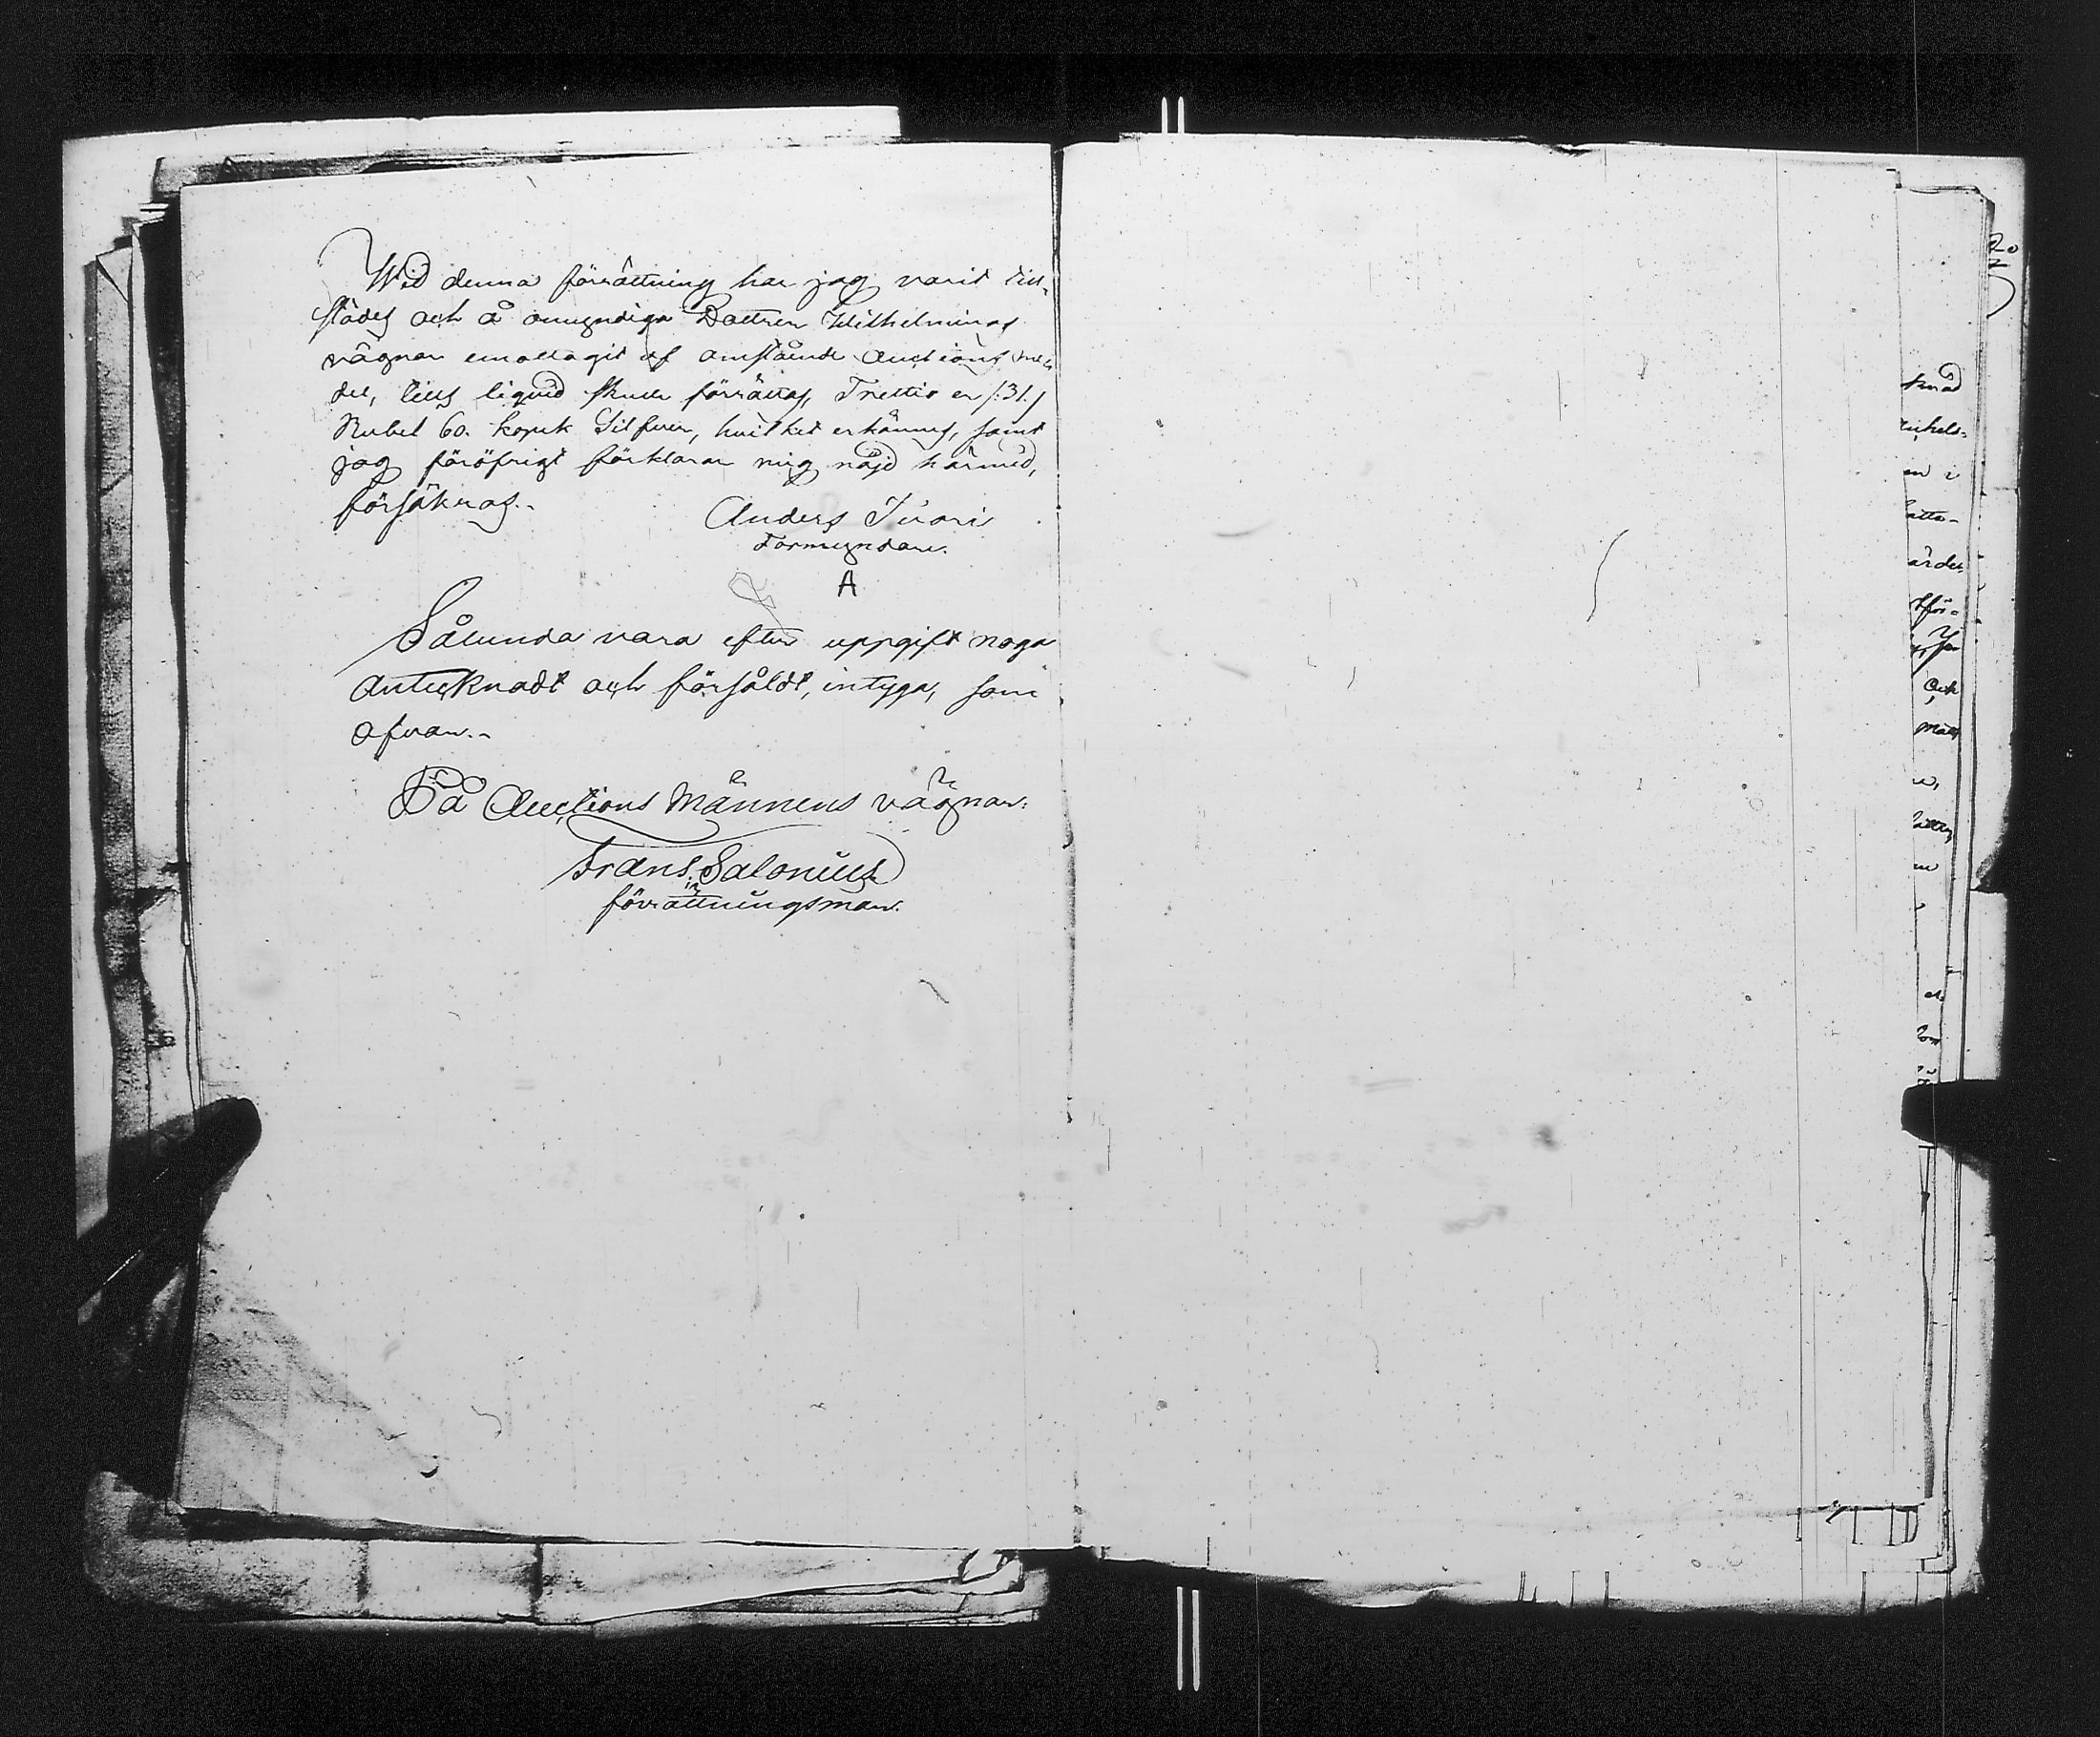 Wid denna förrättning har jag varit till-
städes och å omyndiga Dottren Wilhelminas
vägnar emottagit af omstående Auctions me-
del, tills liquid skulle förrättas, Trettio en /:31:/
Rubel 60. kopek Silfver, hvilket erkännes, samt
jag föröfrigt förklarar mig nöjd härmed,
försäkras.
Anders Juori
Förmyndare.
A
Sålunda vara efter uppgift noga
Antecknadt och försåldt, intyga, som
ofvan.
På Auctions Männens vägnar:
Frans Salonius
förrättningsman.